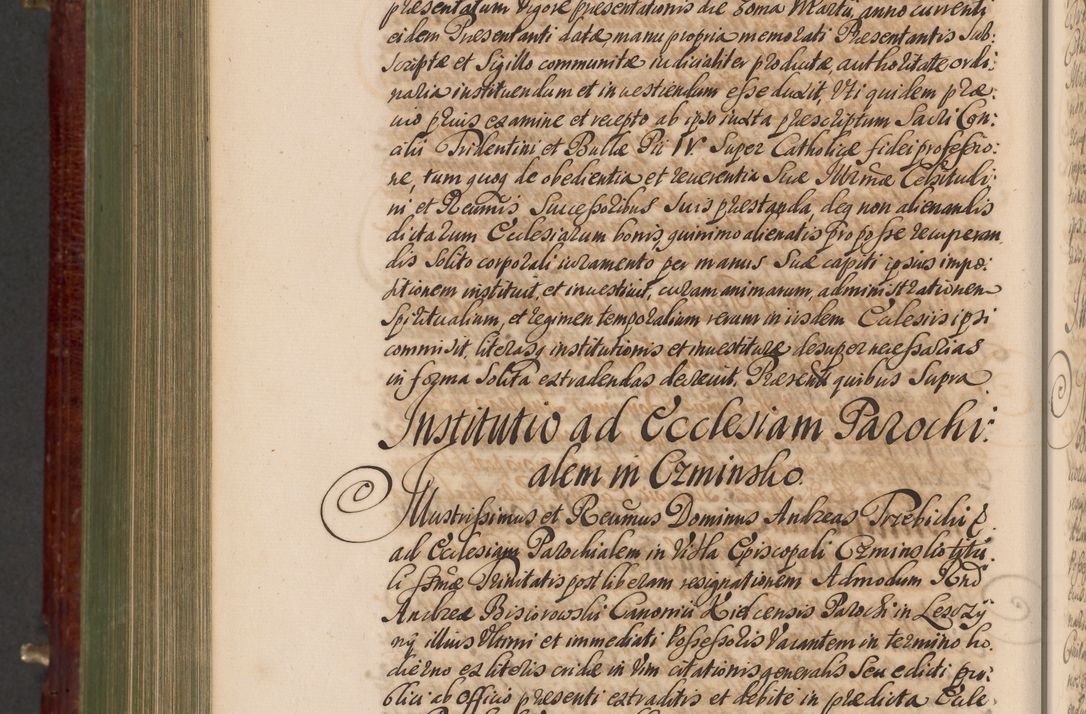 præsentatum vigore præsentationis die 20ma Martii, anno currenti
eidem Præsentanti datæ, manu propria memorati Præsentantis sub:
scriptæ et Sigillo communitæ iudicialiter productæ, authoritate ordi:
naria instituendum et investiendum esse duxit, Uti quidem præ:
vio prius examine et recepto ab ipso iuxta præscriptum Sacri Con:
cilii Tridentini et Bullæ Pii IV. Super Catholicæ fidei professio:
ne, tum quoq de obedientia et reverentia Suæ Illrmæ Celsitudi:
ni, et Reumis Successoribus Suis præstanda, deq non alienandis
dictarum Ecclesiarum bonis, quinimo alienatis pro posse recuperan
dis solito corporali iuramento per manus Suæ capiti ipsius impo:
sitionem instituit, et investivit, curam animarum, administrationem
Spiritualium, et regimen temporalium rerum in iisdem Ecclesiis ipsi
commisit, literasq institutionis et investituræ desuper necessarias
in forma solita extradendas decrevit. Præsentibus quibus Supra
Institutio ad Ecclesiam Parochi:
alem in Czminsko.
Illustrissimus et Reumus Dominus Andreas Trzebicki E.
ad Ecclesiam Parochialem in Villa Episcopali Czminsko titu:
li Ssmæ Trinitatis post liberam resignationem Admodum Rndi
Andreæ Bisiorowski Canonici Kielcensis Parochi in Leszczy
nÿ illius Ultimi et immediati Possessoris vacantem in termino ho:
dierno ex literis cridæ in vim citationis generalis Seu edicti pu:
blici ab Officio præsenti extraditis et debite in prædicta Eccle: